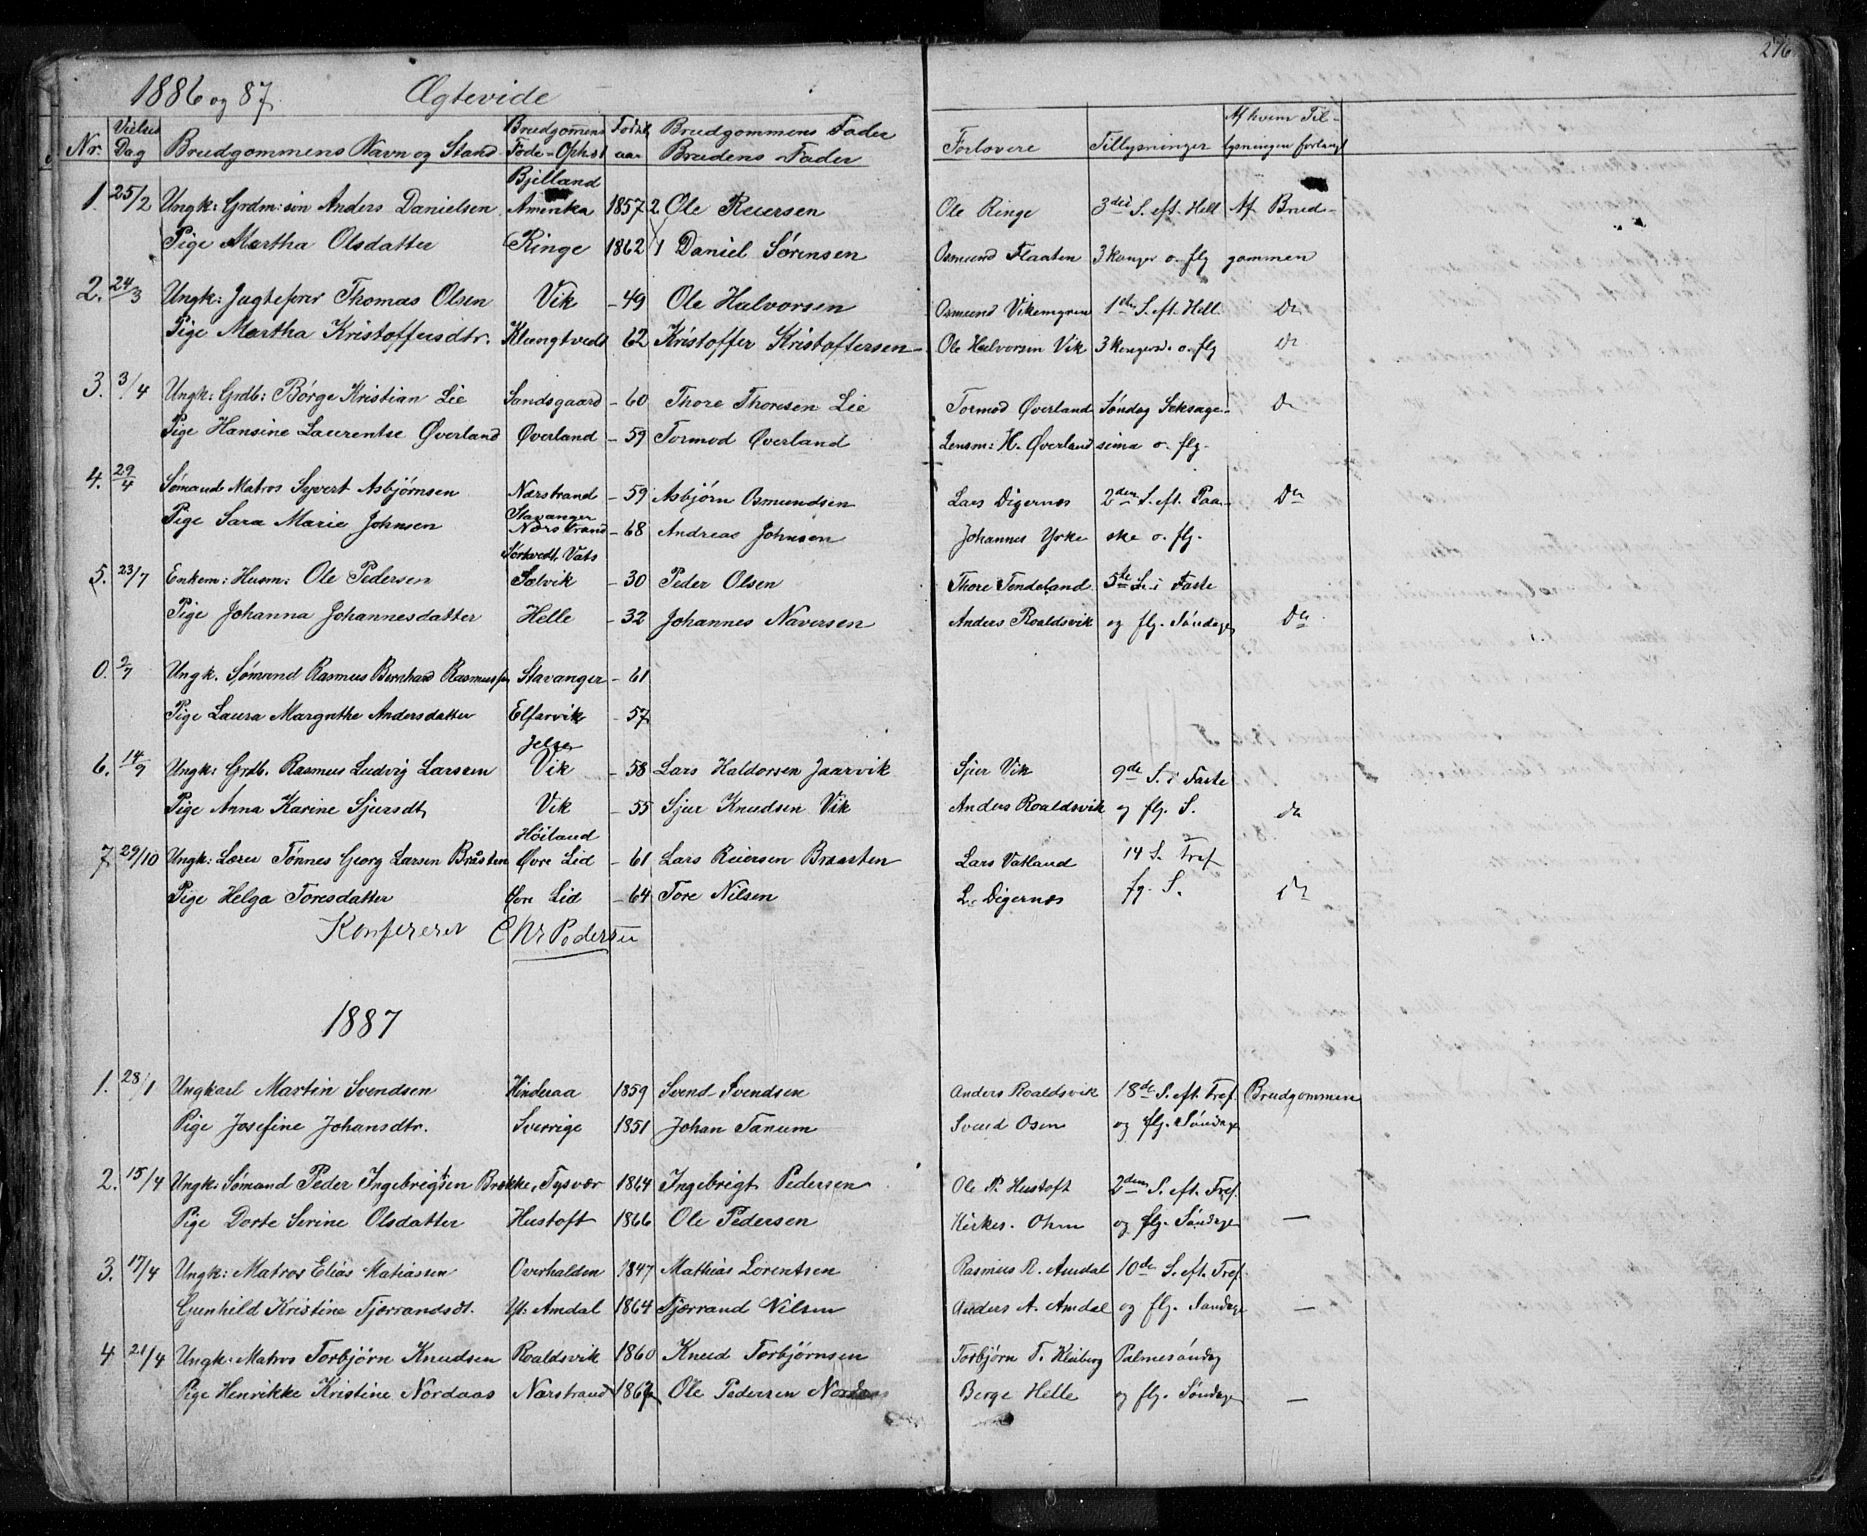 276
1886 og 87. Ægteviede
Nr. Vielses Dag Brudgommens Navn og Stand Brudgommens Føde-Ophst Føds. aar Brudgommens Fader Brudens Fader Forlovere Tillysninger Af hvem Tillysningen forlangt
Bjelland
1. 25/2 Ungk: Grdm: søn Anders Danielsen Amerika 1857 2 Ole Reiersen Ole Ringe 3die S. eft. Hell Af Brud-
Pige Martha Olsdatter Ringe 1862 1 Daniel Sørensen Osmund Flaaten 3 konger o. flg gommen
2. 24/3 Ungk: Jagtefører Thomas Olsen Vik - 49 Ole Halvorsen Osmund Vikemyren 1ste S. eft. Hell. Do
Pige Martha Kristoffersdtr. Klungtvedt 62 Kristoffer Kristoffersen Ole Halvorsen Vik 3 kongersd. o. flg Do
3. 3/4 Ungk: Grdb: Børge Kristian Lie Sandsgaard - 60 Thore Thoresen Lie Tormod Øverland Søndag Seksage- Do
Pige Hansine Laurentse Øverland Øverland - 59 Tormod Øverland Lensm: H. Øverland sima o. flg.
4. 29/4 Sømand Matros Syvert Asbjørnsen Nærstrand - 59 Asbjørn Osmundsen Lars Digernæs 2den S. eft. Paa- Do
Stavanger
Pige Sara Marie Johnsen Nærstrand - 68 Andreas Johnsen Johannes Yrke ske o. flg.
Sørkvedt. Vats
5. 23/7 Enkem: Husm: Ole Pedersen Sælvik - 30 Peder Olsen Thore Tendeland 5te S. i Faste
Pige Johanna Johannesdatter Helle - 32 Johannes Naversen Anders Roaldsvik og flg. Søndage Do
0. 2/7 Ungk. Sømand Rasmus Bernhard Rasmussen Stavanger - 61
Pige Laura Margrethe Andersdatter Elfarvik - 57
Jelse
6. 14/9 Ungk: Grdb. Rasmus Ludvig Larsen Vik - 58 Lars Haldorsen Jaarvik Sjur Vik 9de S. i Faste
Pige Anna Karine Sjursdt, Vik - 55 Sjur Knudsen Vik Anders Roaldsvik og flg. S. Do
Høiland
7. 29/10 Ungk: Lærer Tønnes Georg Larsen Bråsten Øvre Lid - 61 Lars Reiersen Braasten Lars Vatland 14 S. Tref
Pige Helga Toresdatter Øvre Lid - 64 Tore Nilsen L. Digernæs fg. S. Do
Konfereret Chr Pedersen
1887
1. 28/1 Ungkarl Martin Svendsen Hinderaa 1859 Svend Svendsen Anders Roaldsvik 18de S. eft. Tref. Brudgommen
Pige Josefine Johansdtr. Sverrige 1851 Johan Tanum Svend Osen og flg. Søndage
2. 15/4 Ungk: Sømand Peder Ingebrigtsen Brække, Tysvær 1864 Ingebrigt Pedersen Ole P. Hustoft 2den S. eft. Tref.
Pige Dorte Serine Olsdatter Hustoft 1866 Ole Pedersen Kirkes. Ohm og flg. Søndage —
3. 17/4 Ungk: Matros Elias Matiassen Overhalden 1847 Mathias Lorentsen Rasmus R. Amdal 10de S. eft. Tref.
Gunhild Kristine Tjærrandsdt. Yt: Amdal 1864 Tjærrand Nilsen Anders A. Amdal og flg. Søndage —
4 21/4 Ungk. Matros Torbjørn Knudsen Roaldsvik 1860 Knud Torbjørnsen Torbjørn T. Kleiberg Palmesøndag
Pige Henrikke Kristine Nordaas Nærstrand 1867 Ole Pedersen Nordaas Berge Helle og flg. Søndage —